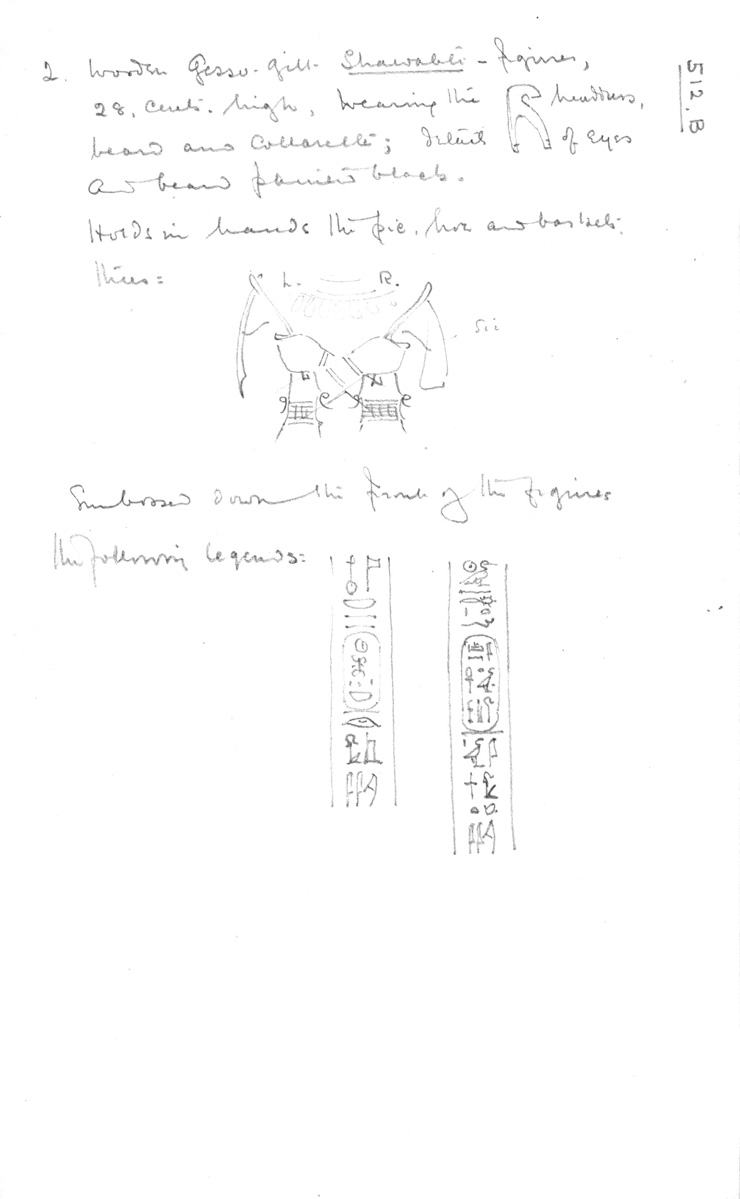 512.B
2. Wooden Gesso-gilt Shawabti-figures,
28. cents. high, wearing the headdress,
beard and collarette; details of eyes
and beard painted black.
Holds in hands the pic, hoe and baskets.
thus:=
L. R.
sic
Embossed down the front of the figures
the following legends:=